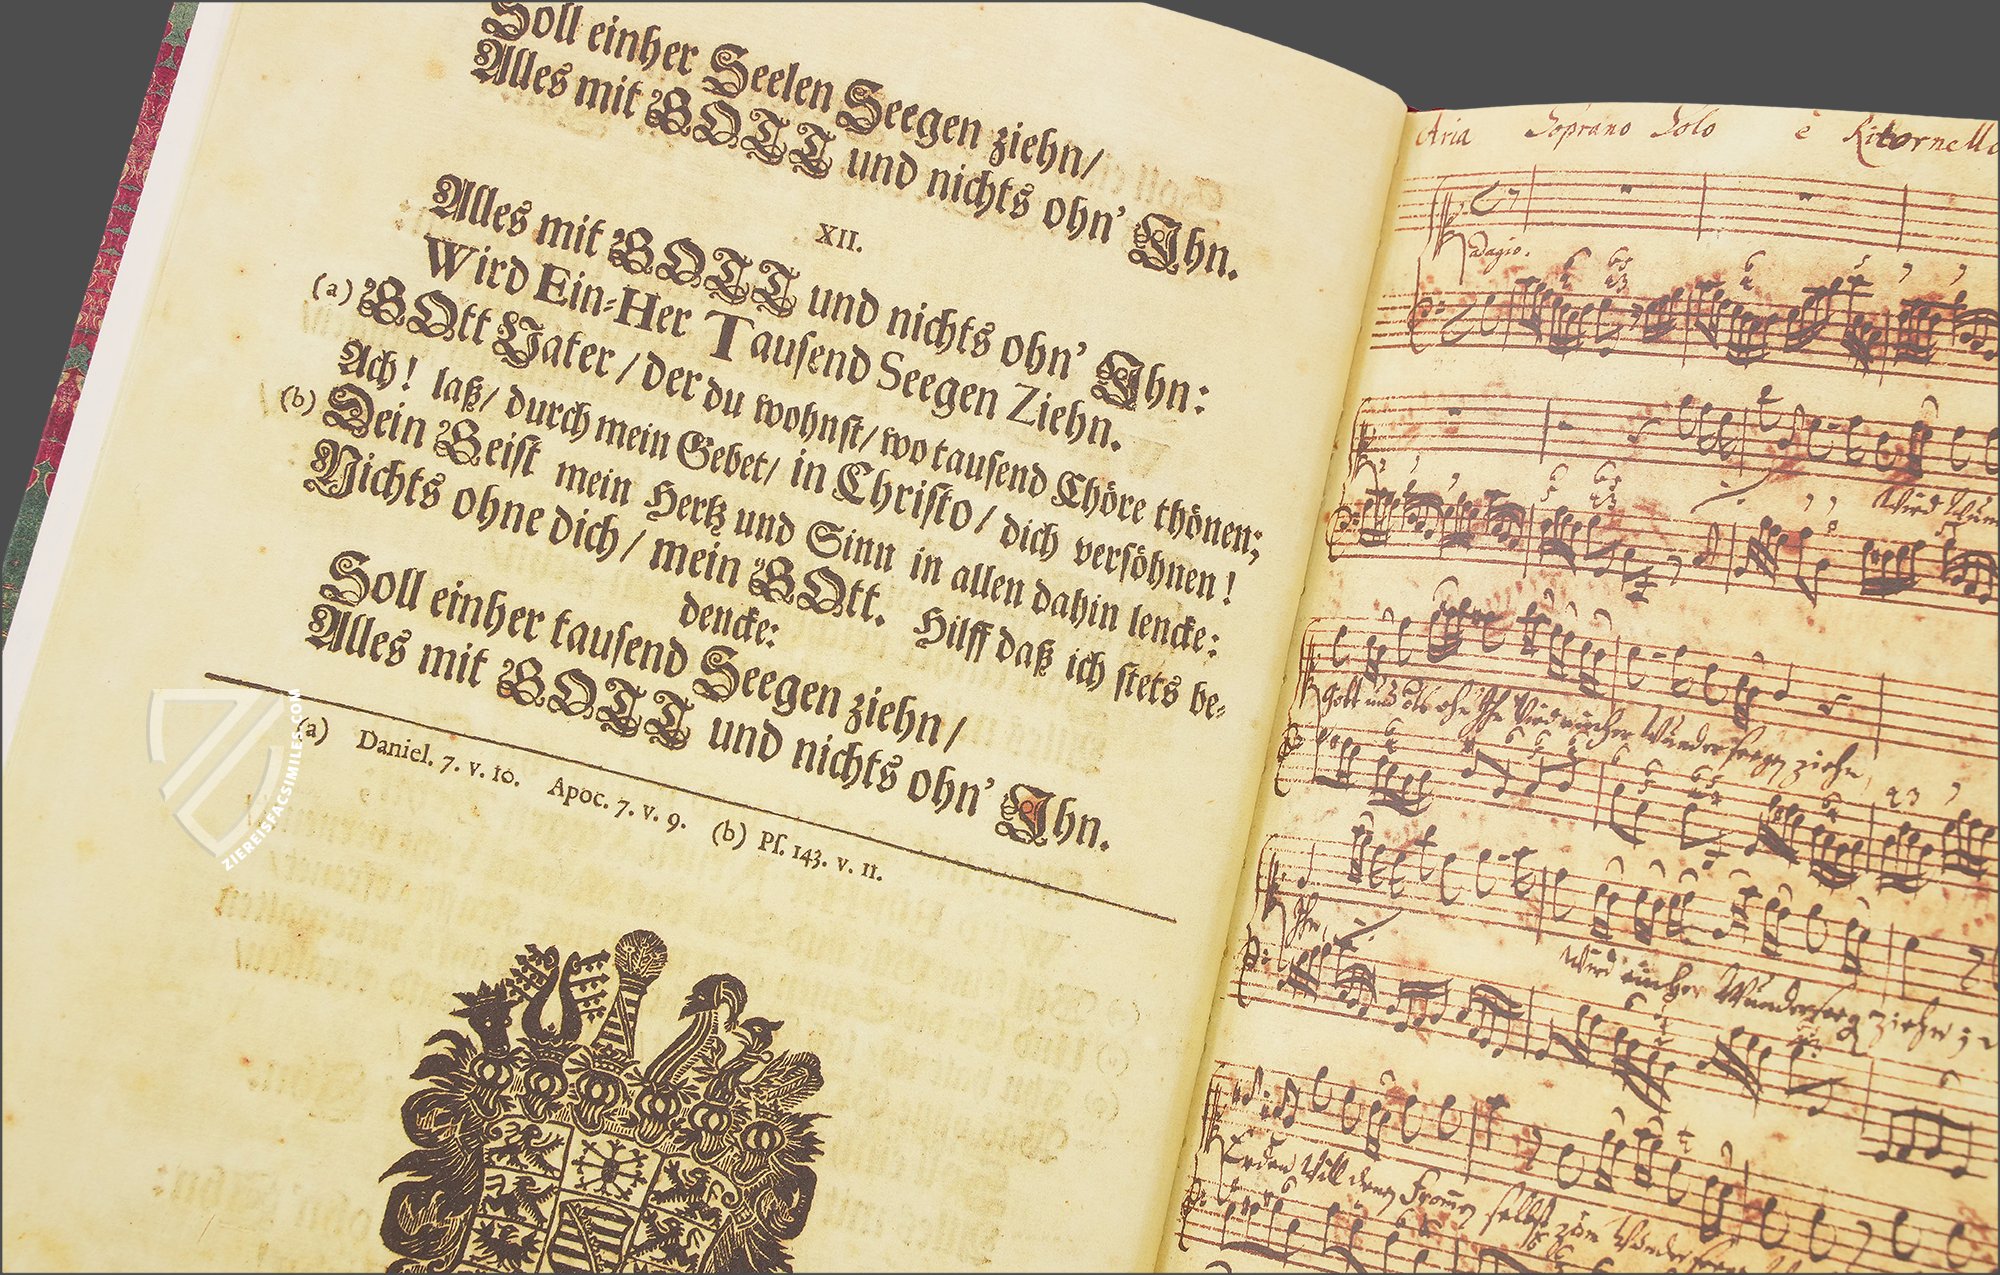 Soll einher Seelen Seegen ziehn/
Alles mit GOTT und nichts ohn' Ihn.
XII.
Alles mit GOTT und nichts ohn' Ihn:
Wird Ein-Her Tausend Seegen Ziehn.
(a) GOtt Vater/ der du wohnst/ wo tausend Chöre thönen;
Ach! laß/ durch mein Gebet/ in Christo/ dich versöhnen!
(b) Dein Geist mein Hertz und Sinn in allen dahin lencke:
Nichts ohne dich/ mein GOtt. Hilff daß ich stets be-
dencke:
Soll einher tausend Seegen ziehn/
Alles mit GOTT und nichts ohn' Ihn.
(a) Daniel. 7. v. 10. Apoc. 7. v. 9. (b) Ps. 143. v. 11.
ZIEREISFACSIMILES.COM
Aria Soprano Solo è Ritornello
adagio.
Wird
Gott und nichts ohn Ihn Wird einher Wunderseegen ziehn
Ihn,
Wird einher Wunderseegen ziehn
Erden Will denen Frommen selbst zum Wunder Seegen